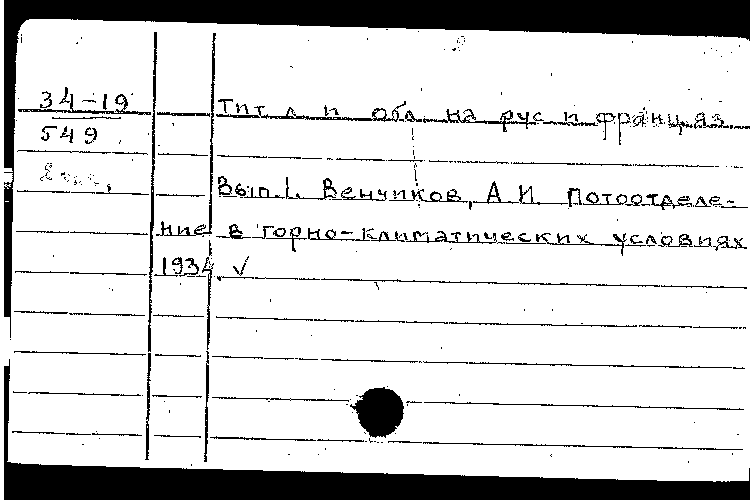 34-19 Тит л и обл на рус и франц. яз.
549
Вып. 1. Венчиков, А.И. Потоотделе-
ние в горно-климатических условиях
1934. √